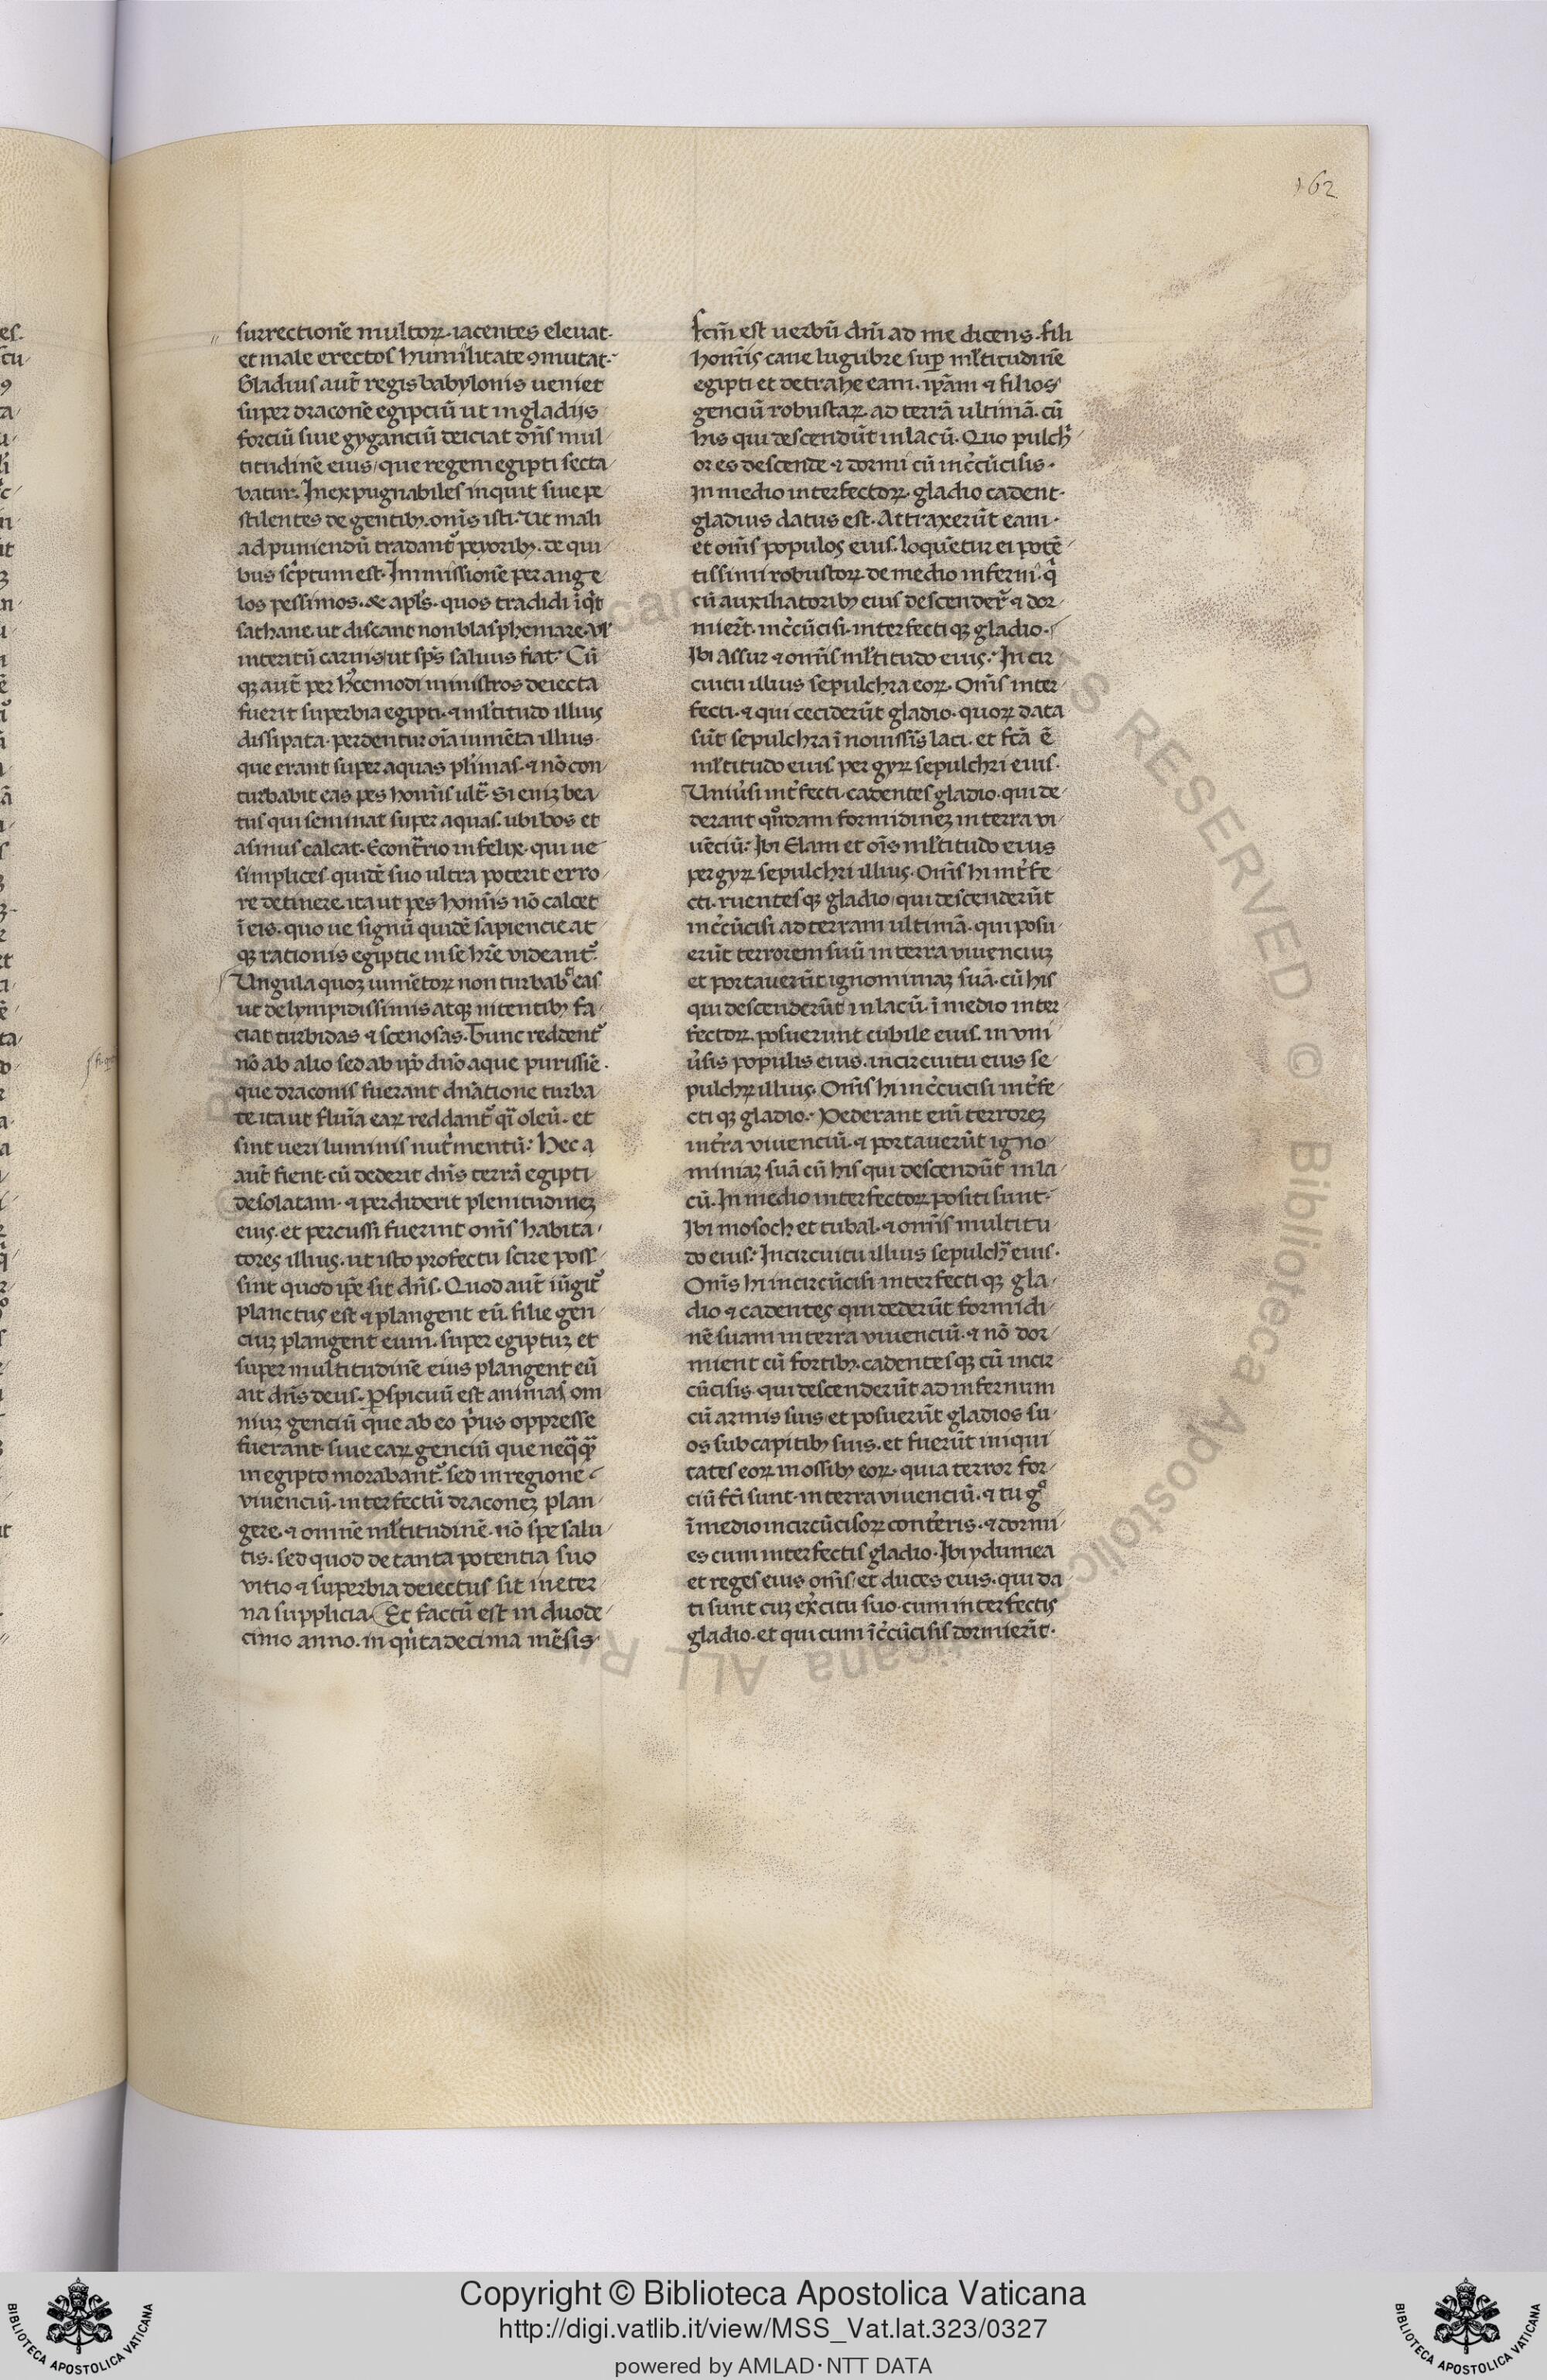 162
surrectionē multoꝝ· iacentes eleuat·
et male erectos humilitate ꝯmutat·
Gladius aut̄ regis babylonis ueniet
super draconē egipciū ut in gladijs
forciū siue gyganciū deiciat dn̄s mul
titudinē eius/ que regem egipti secta
batur. Inexpugnabiles inquit siue pe
stilentes de gentibꝫ· om̄s isti. Ut mali
ad puniendū tradant᷑ peyoribꝫ. de qui
bus sc̄ptum est. Inmissionē per ange
los pessimos. & apl̄s. quos tradidi īq̄t
sathane ut discant non blasphemare. vl̓
interitū carnis/ ut sp̄s saluus fiat. Cū
qꝫ aut̄ per hꝰcemodi ministros deiecta
fuerit superbia egipti· ⁊ ml̓titudo illius
dissipata· perdentur oīa iumēta illius·
que erant super aquas pl̓imas· ⁊ nō con
turbabit eas pes homīs ult᷑. Si enīꝫ bea
tus qui seminat super aquas. ubi bos et
asinus calcat. Econt᷑rio infelix· qui ue
simplices quidē suo ultra poterit erro
re detinere. ita ut pes homīs nō calcet
ī eis. quo ue signū quidē sapiencie at
qꝫ rationis egiptie in se hr̄e videant᷑.
Ungula quoꝫ iumētoꝝ non turbabᷣ eas
ut de lympidissimis atqꝫ nitentibꝫ fa
ciat turbidas ⁊ scenosas. Tunc reddent᷑
nō ab alio sed ab ip̄o dn̄o aque purissiē.
que draconis fuerant dn̄atione turba
te ita ut flum̄a eaꝝ reddant᷑ q̄i oleū. et
sint ueri luminis nut̓mentū. Hec a
aut̄ fient. cū dederit dn̄s terrā egipti
desolatam· ⁊ perdiderit plenitudineꝫ
eius. et percussi fuerint om̄s habita
tores illius. ut isto profectu scire poss
sint quod ip̄e sit dn̄s. Quod aut̄ iūgit᷑
planctus est ⁊ plangent eū. filie gen
ciuꝫ plangent eum. super egiptuꝫ et
super multitudinē eius plangent eū
ait dn̄s deus. Ꝑspicuū est animas om
niuꝫ genciū que ab eo p̓us oppresse
fuerant· siue eaꝝ genciū que neq̄q̄
in egipto morabant᷑. sed in regione
viuenciū. interfectū draconeꝫ plan
gere. ⁊ omnē ml̓titudinē. nō spe salu
tis. sed quod de tanta potentia suo
vitio ⁊ superbia deiectus sit in eter
na supplicia. Et factū est in duode
cimo anno. in qn̓tadecima mēsis
fcm̄ est uerbū dn̄i ad me dicens. fili
homīs cane lugubre suꝑ ml̓titudinē
egipti et detrahe eam. ip̄am ⁊ filios
genciū robustaꝝ. ad terrā ultimā. cū
his qui descendūt in lacū. Quo pulch̓
or es descende ⁊ dormi cū inc̓cūcisis.
In medio interfectoꝝ. gladio cadent.
gladius datus est. Attraxerūt eam.
et om̄s populos eius. loquētur ei potē
tissimi robustoꝝ de medio inferni. q̓
cū auxiliatoribꝫ eius descender̄t ⁊ dor
mier̄t. inc̓cūcisi. interfecti qꝫ gladio.
Ibi assur ⁊ om̄is ml̓titudo eius. In cir
cuitu illius sepulchra eoꝝ. Om̄s inter
fecti. ⁊ qui ceciderūt gladio. quoꝝ data
sūt sepulchra ī nouissīs laci. et fc̄a ē
ml̓titudo eius per gyꝝ sepulchri eius.
Uniu̓si int̓fecti. cadentes gladio. qui de
derant qn̄dam formidineꝫ in terra vi
uēciū. Ibi Elam et oīs ml̓titudo eius
per gyꝝ sepulchri illius. Om̄s hi int̓fe
cti. ruentes qꝫ gladio/ qui descenderūt
inc̓cūcisi ad terram ultimā. qui posu
erūt terrorem suū in terra viuenciuꝫ
et portauerūt ignominiaꝫ suā. cū his
qui descenderūt in lacū. ī medio inter
fectoꝝ. posuerunt cubile eius. in vni
u̓sis populis eius. in circuitu eius se
pulchꝝ illius. Om̄s hi inc̓cucisi int̓fe
cti qꝫ gladio. Dederant eni terroreꝫ
int̓ra viuenciū. ⁊ portauerūt igno
miniaꝫ suā cū his qui descendūt in la
cū. In medio interfectoꝝ positi sunt.
Ibi mosoch et tubal. ⁊ om̄is multitu
do eius. In circuitu illius sepulch̓ eius.
Om̄s hi incircūcisi interfecti qꝫ gla
dio ⁊ cadentes qui dederūt formidi
nē suam in terra viuenciū. ⁊ nō dor
mient cū fortibꝫ. cadentes qꝫ cū incir
cūcisis. qui descenderūt ad infernum
cū armis suis et posuerūt gladios su
os sub capitibꝫ suis. et fuerūt iniqui
tates eoꝝ in ossibꝫ eoꝝ. quia terror for
ciū fc̄i sunt. in terra viuenciū. ⁊ tu gͦ
ī medio incircūcisoꝝ cont̓eris. ⁊ dormi
es cum interfectis gladio. Ibi ydumea
et reges eius om̄s/ et duces eius. qui da
ti sunt cuꝫ ex̓citu suo. cum interfectis
gladio. et qui cum īc̓cūcisis dormier̄t.
Copyright © Biblioteca Apostolica Vaticana
http://digi.vatlib.it/view/MSS_Vat.lat.323/0327
powered by AMLAD·NTT DATA
BIBLIOTECA APOSTOLICA VATICANA
BIBLIOTECA APOSTOLICA VATICANA